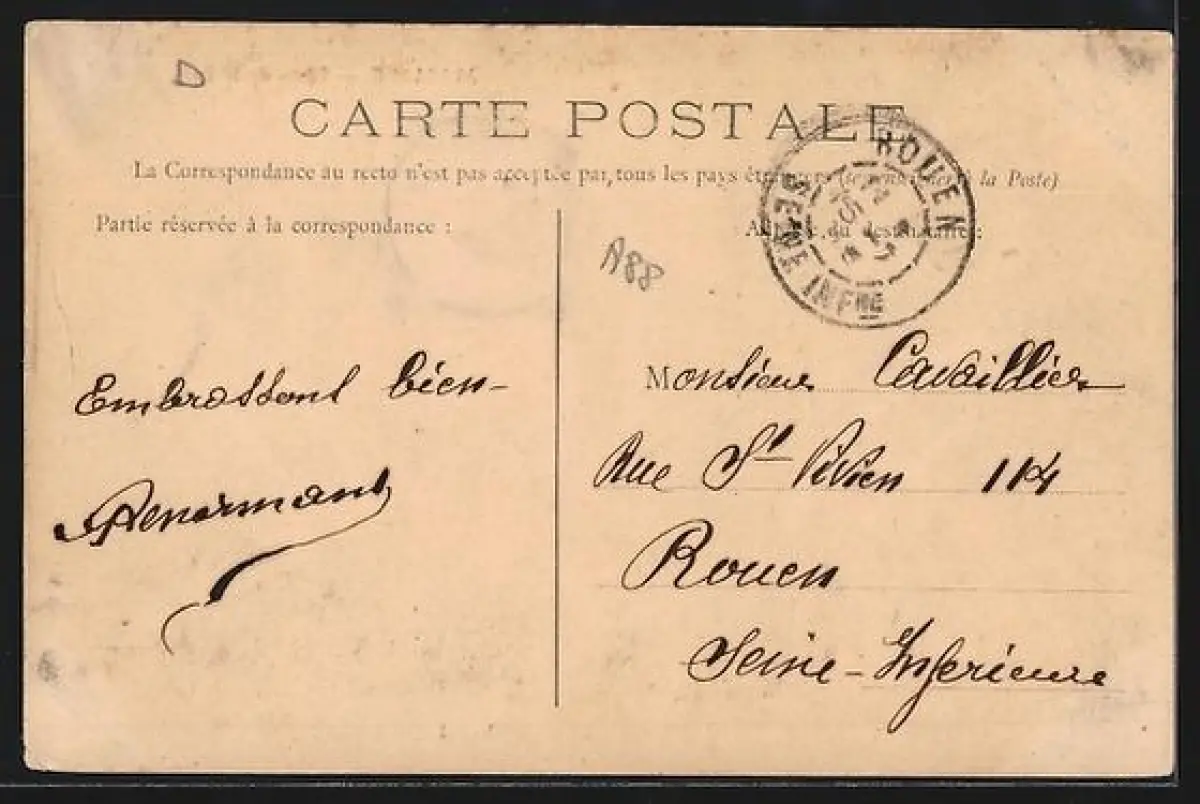 D
CARTE POSTALE
La Correspondance au recto n'est pas acceptée par tous les pays étrangers (se renseigner à la Poste)
Partie réservée à la correspondance :
Adresse du destinataire :
A88
ROUEN
SEINE INFRE
Embrassons bien-
Lenormant
Monsieur Cavaillier
Rue St Vivien 114
Rouen
Seine-Inferieure